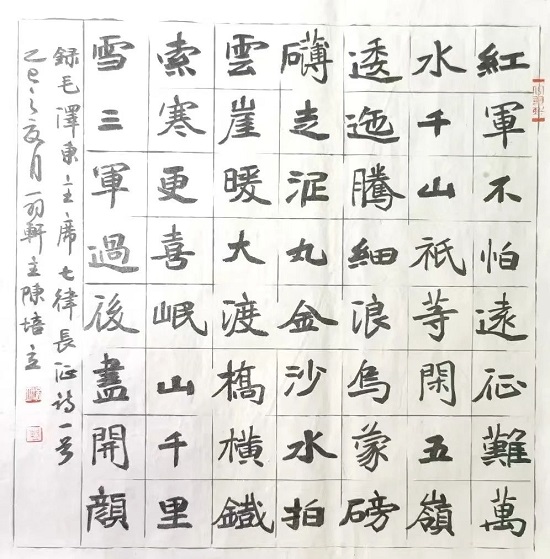 紅軍不怕遠征難萬
水千山祇等閑五嶺
逶迤騰細浪烏蒙磅
礴走泥丸金沙水拍
雲崖暖大渡橋橫鐵
索寒更喜岷山千里
雪三軍過後盡開顏
録毛澤東主席七律長征詩一首
乙巳之夏月羽軒主陳培立